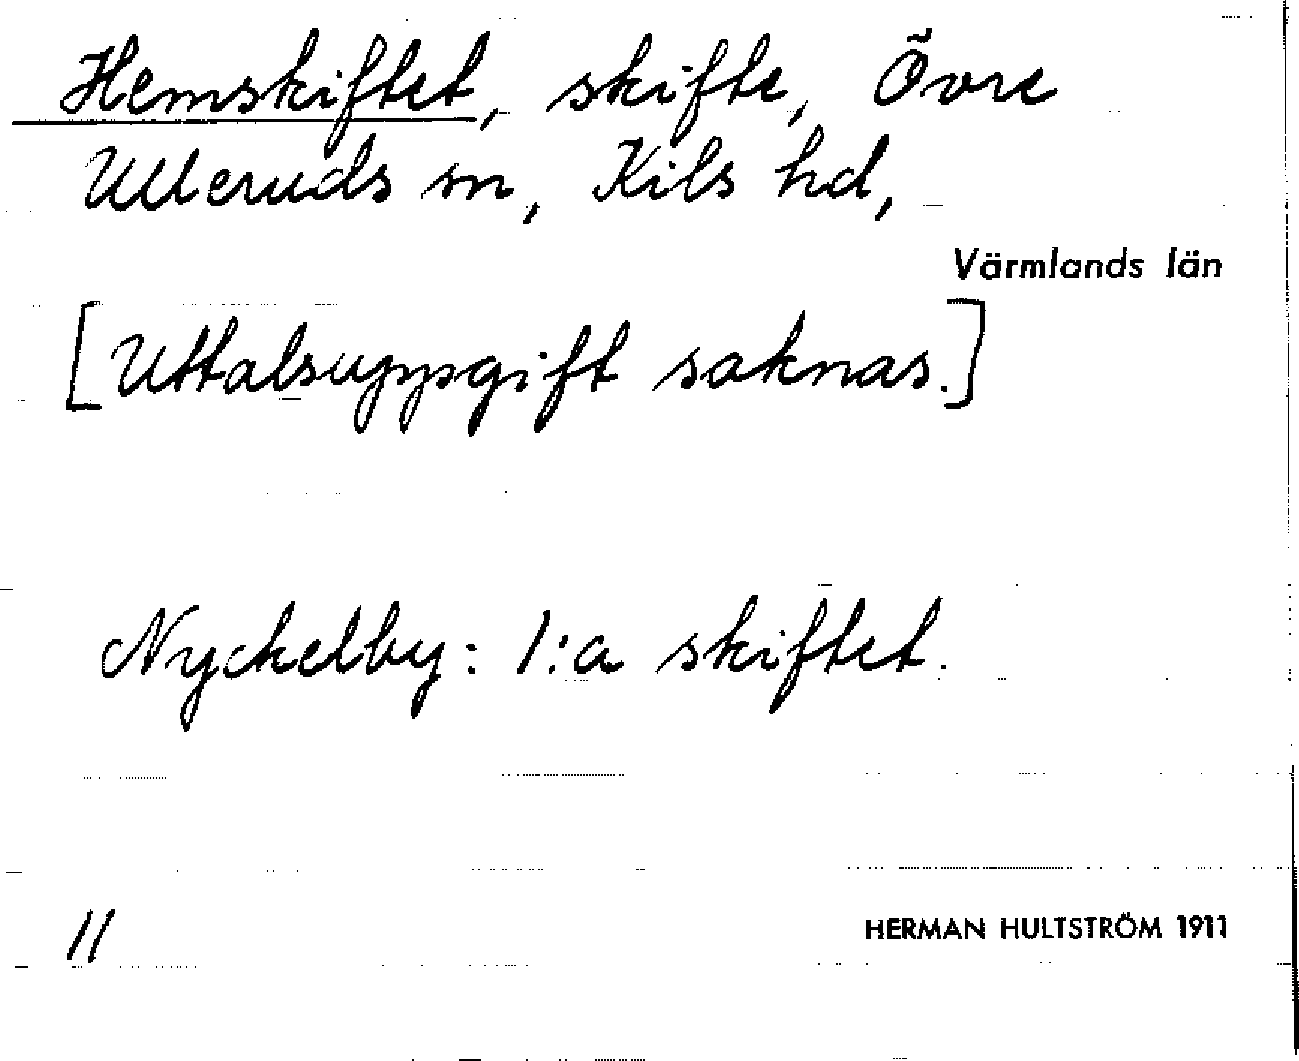 Hemskiftet, skifte, Övre
Ulleruds sn, Kils hd,
Värmlands län
[Uttalsuppgift saknas.]
Nyckelby: 1:a skiftet.
11
HERMAN HULTSTRÖM 1911